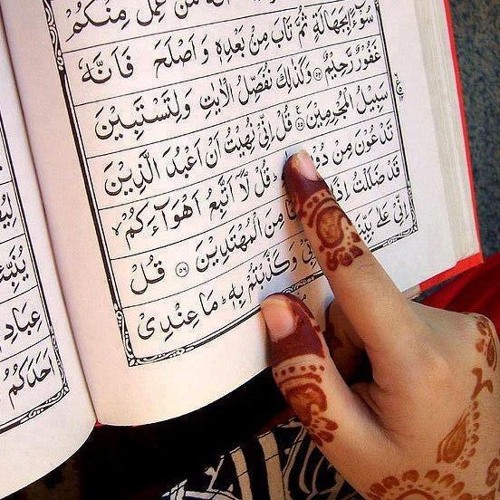 مَنْ عَمِلَ مِنْكُمْ
سُوْٓءًۢا بِجَهَالَةٍ ثُمَّ تَابَ مِنْۢ بَعْدِهٖ وَ اَصْلَحَ فَاَنَّهٗ
غَفُوْرٌ رَّحِيْمٌ ۝٥٤ وَكَذٰلِكَ نُفَصِّلُ الْاٰيٰتِ وَلِتَسْتَبِيْنَ
سَبِيْلُ الْمُجْرِمِيْنَ ۝٥٥ قُلْ اِنِّىْ نُهِيْتُ اَنْ اَعْبُدَ الَّذِيْنَ
تَدْعُوْنَ مِنْ قُلْ لَّاۤ اَتَّبِعُ اَهْوَآءَكُمْ
قَدْ ضَلَلْتُ مِنَ الْمُهْتَدِيْنَ ۝٥٦ قُلْ
اِنِّىْ عَلٰى وَكَذَّبْتُمْ بِهٖ مَا عِنْدِىْ
عِبَادِ
اَحَدَكُمُ